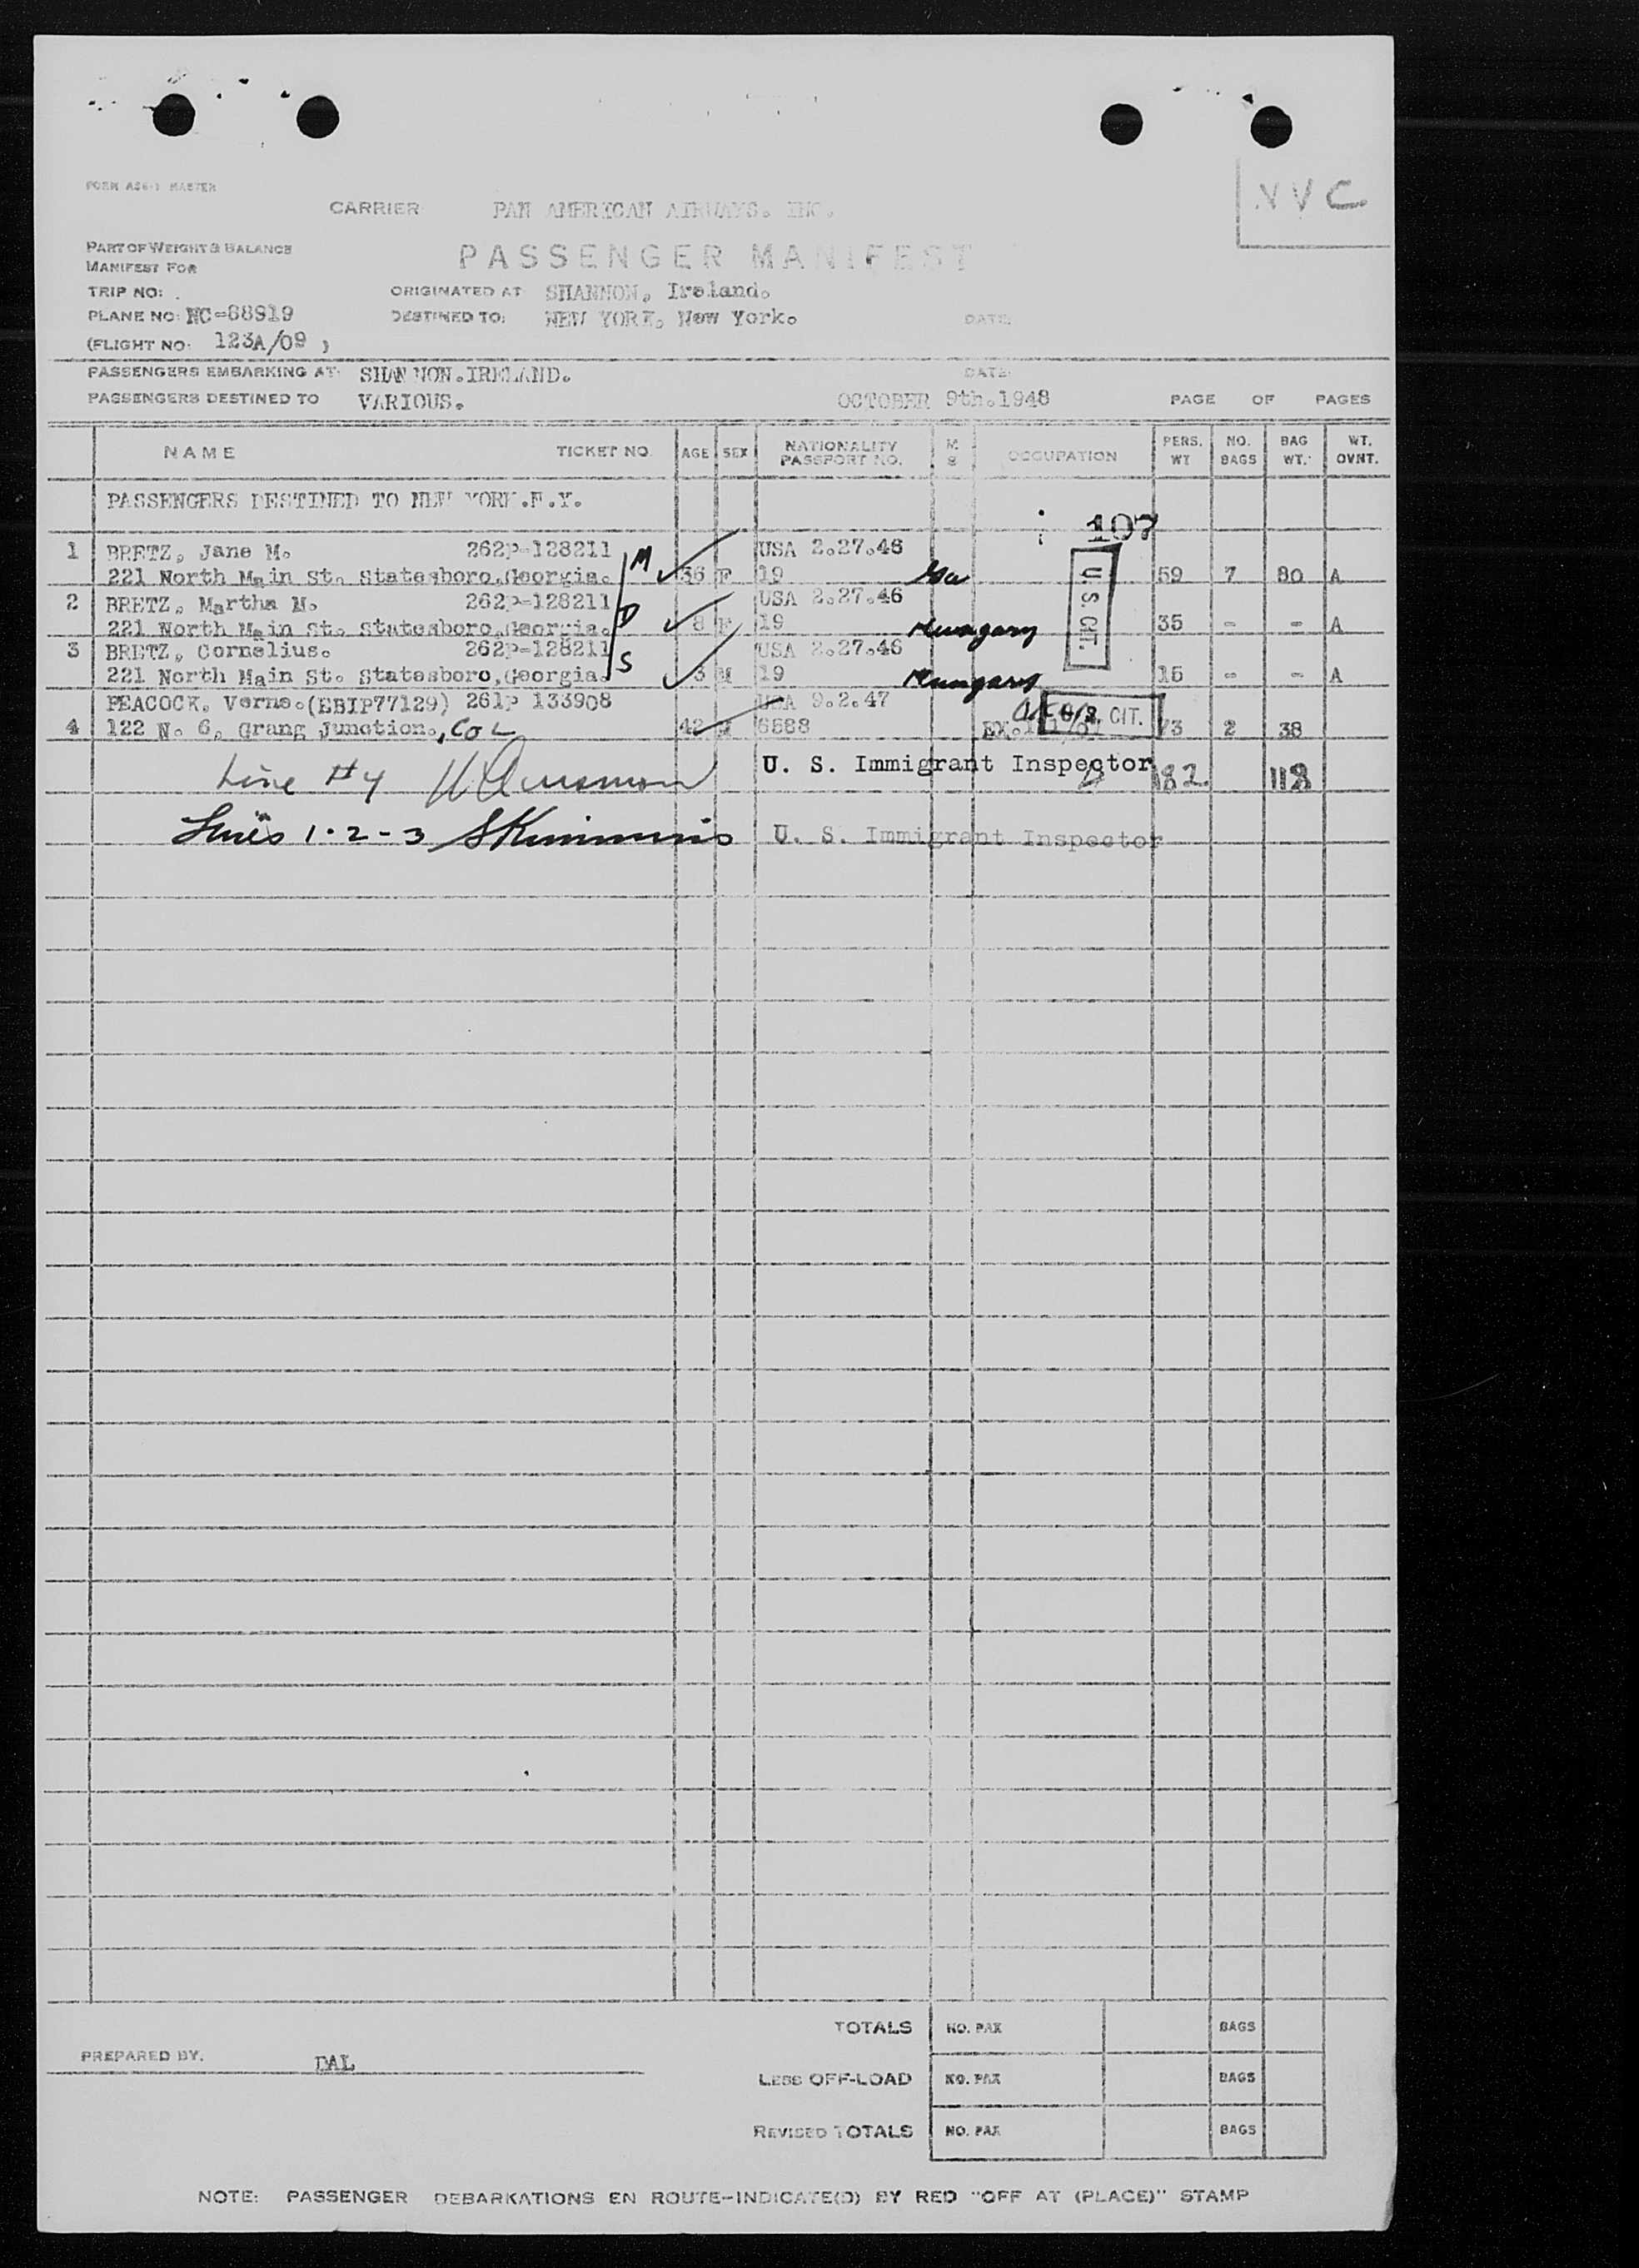 FORM AS6-1 MASTER
NVC
CARRIER PAN AMERICAN AIRWAYS. INC.
PART OF WEIGHT & BALANCE
MANIFEST FOR
PASSENGER MANIFEST
TRIP NO: ORIGINATED AT SHANNON, Ireland.
PLANE NO: NC-88919 DESTINED TO: NEW YORK, New York. DATE:
(FLIGHT NO: 123A/09 )
PASSENGERS EMBARKING AT: SHANNON.IRELAND. DATE:
PASSENGERS DESTINED TO VARIOUS. OCTOBER 9th.1948 PAGE OF PAGES
NAME TICKET NO. AGE SEX NATIONALITY PASSPORT NO. M S OCCUPATION PERS. WT NO. BAGS BAG WT. WT. OVNT.
PASSENGERS DESTINED TO NEW YORK.N.Y.
107
1 BRETZ, Jane M. 262P-128211 M USA 2.27.46
221 North Main St. Statesboro,Georgia. 36 F 19 Ga 59 7 80 A
U.S. CIT.
2 BRETZ, Martha N. 262P-128211 D USA 2.27.46
221 North Main St. Statesboro,Georgia. 8 F 19 Hungary 35 - - A
3 BRETZ, Cornelius. 262P-128211 S USA 2.27.46
221 North Main St. Statesboro,Georgia. 3 M 19 Hungary 15 - - A
PEACOCK, Verne.(EBIP77129) 261P 133908 USA 9.2.47
CIT.
4 122 N. 6, Grang Junction., COL 42 M 6588 73 2 38
Line #4 U. S. Immigrant Inspector 182. 118
Lines 1-2-3 U. S. Immigrant Inspector
TOTALS NO. PAX BAGS
PREPARED BY. DAL
LESS OFF-LOAD NO. PAX BAGS
REVISED TOTALS NO. PAX BAGS
NOTE: PASSENGER DEBARKATIONS EN ROUTE-INDICATE(D) BY RED "OFF AT (PLACE)" STAMP